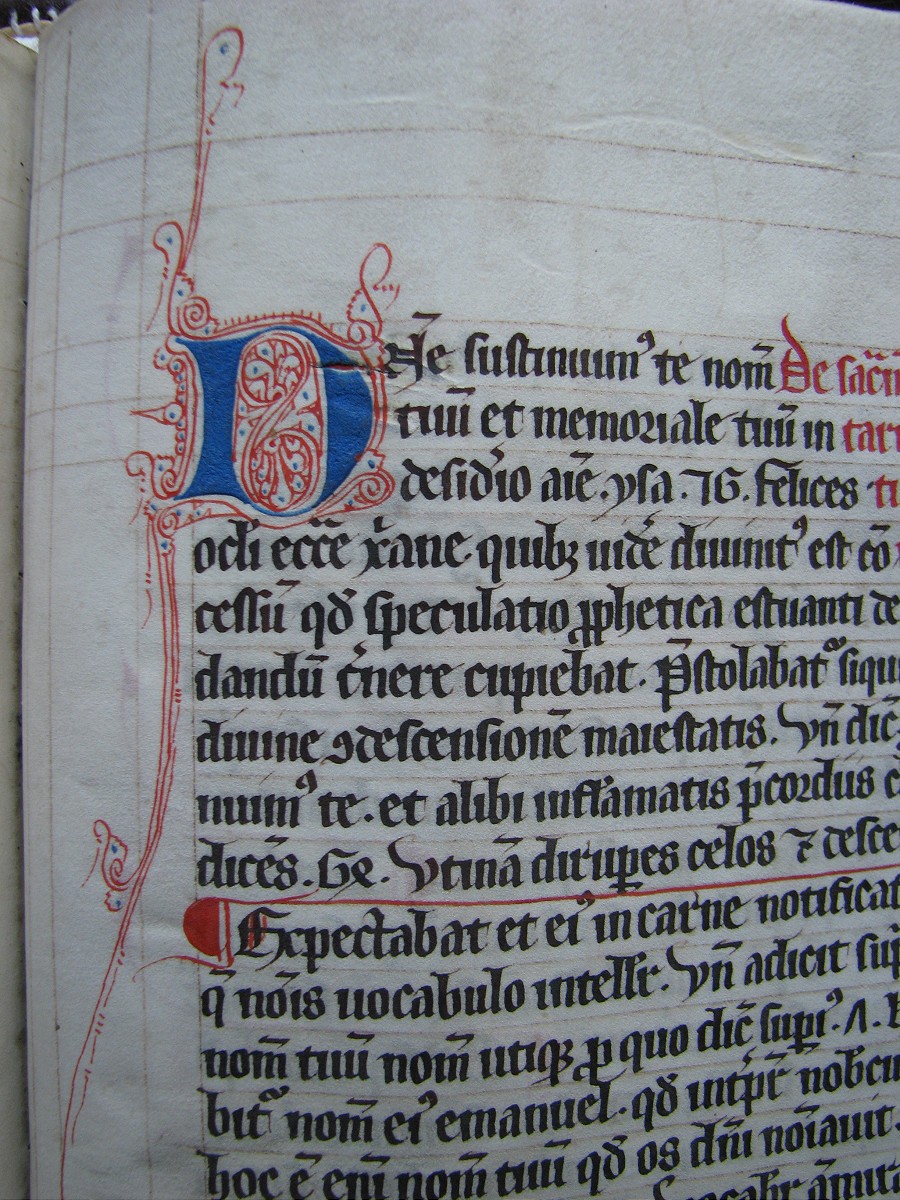 Dñe sustinuimꝰ te nom̄ De sac̄
tuū et memoriale tuū in
desid̓io aīe. ysa. 26. Felices
ocli ecc̄e xp̄iane quibꝫ uid̓e diuinitꝰ est cō
cessū qđ speculatio ꝓphetica estuanti de
dandū c̓nere cupiebat. P̄stolabatᷣ siqui
diuine ꝯdescensionē maiestatis. Vn̄ dic̄
nuimꝰ te. et alibi inflamatis p̄cordiis
dicēs. Vtinā dirūpes celos ⁊ desce
Expectabat et eiꝰ in carne notificat
q̄ nōis uocabulo intellr̄. Vn̄ adicit
nom̄ tuū nom̄ utiqꝫ ꝑ quo dic̄ supiꝰ. 7.
bitᷣ nom̄ eiꝰ emanuel. qđ int̓pr̄ nob̄cū
hoc ē eni᷑ nom̄ tuū qđ os dn̄i noīauit.